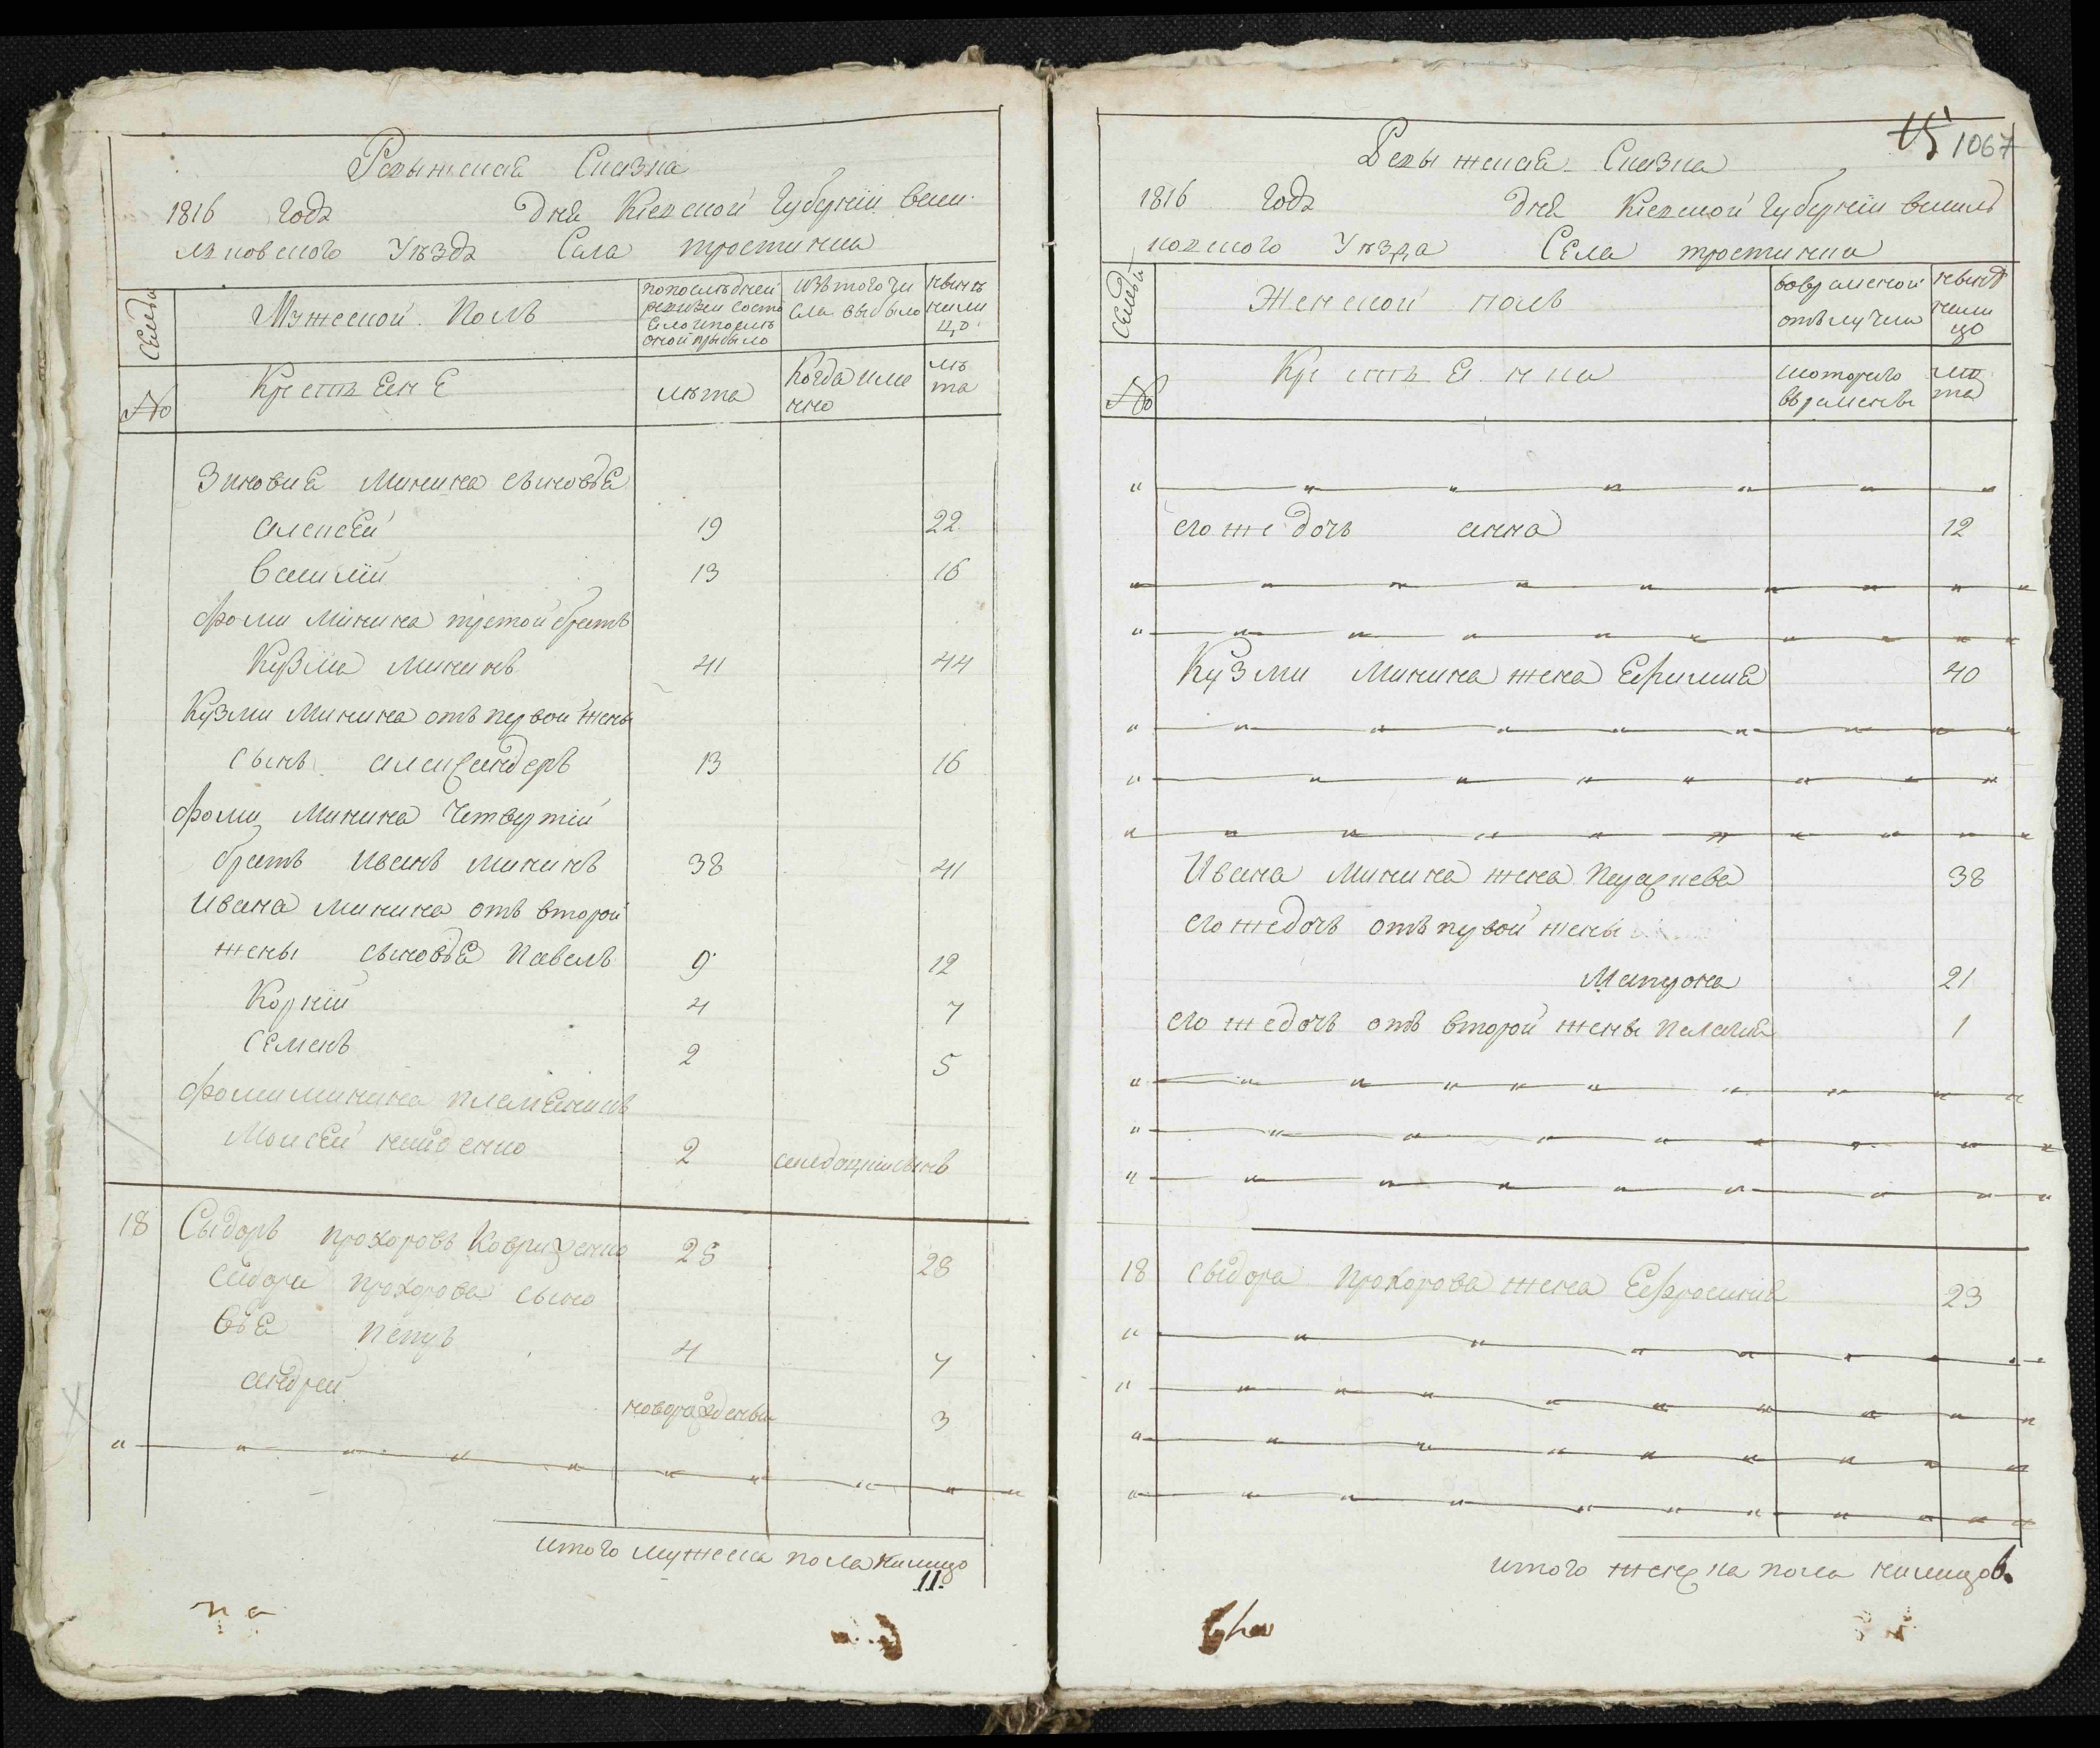 Ревыжская Сказка
1816 года дня Киевской Губернии васи
лковского уѣзда Села тростинки
Семьи
Мужеской Полъ
попослѣдней ревизии состо
яло ипослѣ оной прыбыло
изътого чи
сла выбыло
нынѣ
нали
цо
№
Крестяне
лѣта
Когда име
нно
лѣ
та
Зиновия Минина сыновья
алексей 19 22
василий 13 16
фоми Минина третой братъ
Кузма мининъ 41 44
Кузми Минина отъ первой жены
сынъ александеръ 13 16
фоми Минина Четвертий
братъ Иванъ мининъ 38 41
Ивана минина отъ второй
жены сыновья Павелъ 9 12
Корний 4 7
Семенъ 2 5
фоми минина племеникъ
Моисей найденко 2
18 Сыдоръ прохоровъ 25 28
сидора прохорова сыно
вья петръ 4 7
андрей новорожденый 3
итого мужеска пола налицо
11.
15 1067
Ревыжская Сказка
1816 года дня Киевской Губернии василь
ковского уѣзда Села тростинки
Семьи
Женской полъ
вовременой
отълучки
нынѣ
нали
цо
№
Крестянка
скоторого
времены
лѣ
та
его же дочь анна 12
Кузми Минина жена Ефимия 40
Ивана Минина жена Параскева 38
его же дочь отъ первой жены
Матрона 21
его же дочь отъ второй жены Пелагия 1
18 сыдора Прохорова жена Ефросиния 23
итого женска пола налицо 6.